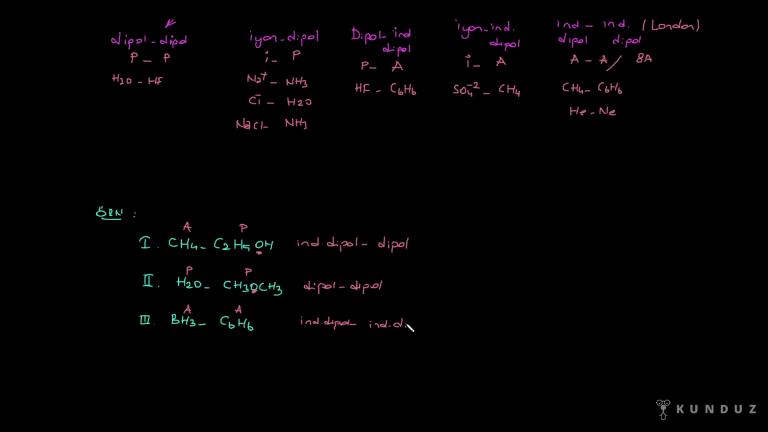 dipol-dipol
P - P
H2O - HF
iyon-dipol
i - P
Na+ - NH3
Cl- - H2O
NaCl - NH3
Dipol-ind dipol
P - A
HF - C6H6
iyon-ind. dipol
i - A
SO4-2 - CH4
ind. - ind. (London)
dipol dipol
A - A / 8A
CH4 - C6H6
He - Ne
ÖRN :
A P
I. CH4 - C2H5OH ind.dipol - dipol
P P
II. H2O - CH3OCH3 dipol - dipol
A A
III. BH3 - C6H6 ind.dipol - ind.d.
KUNDUZ